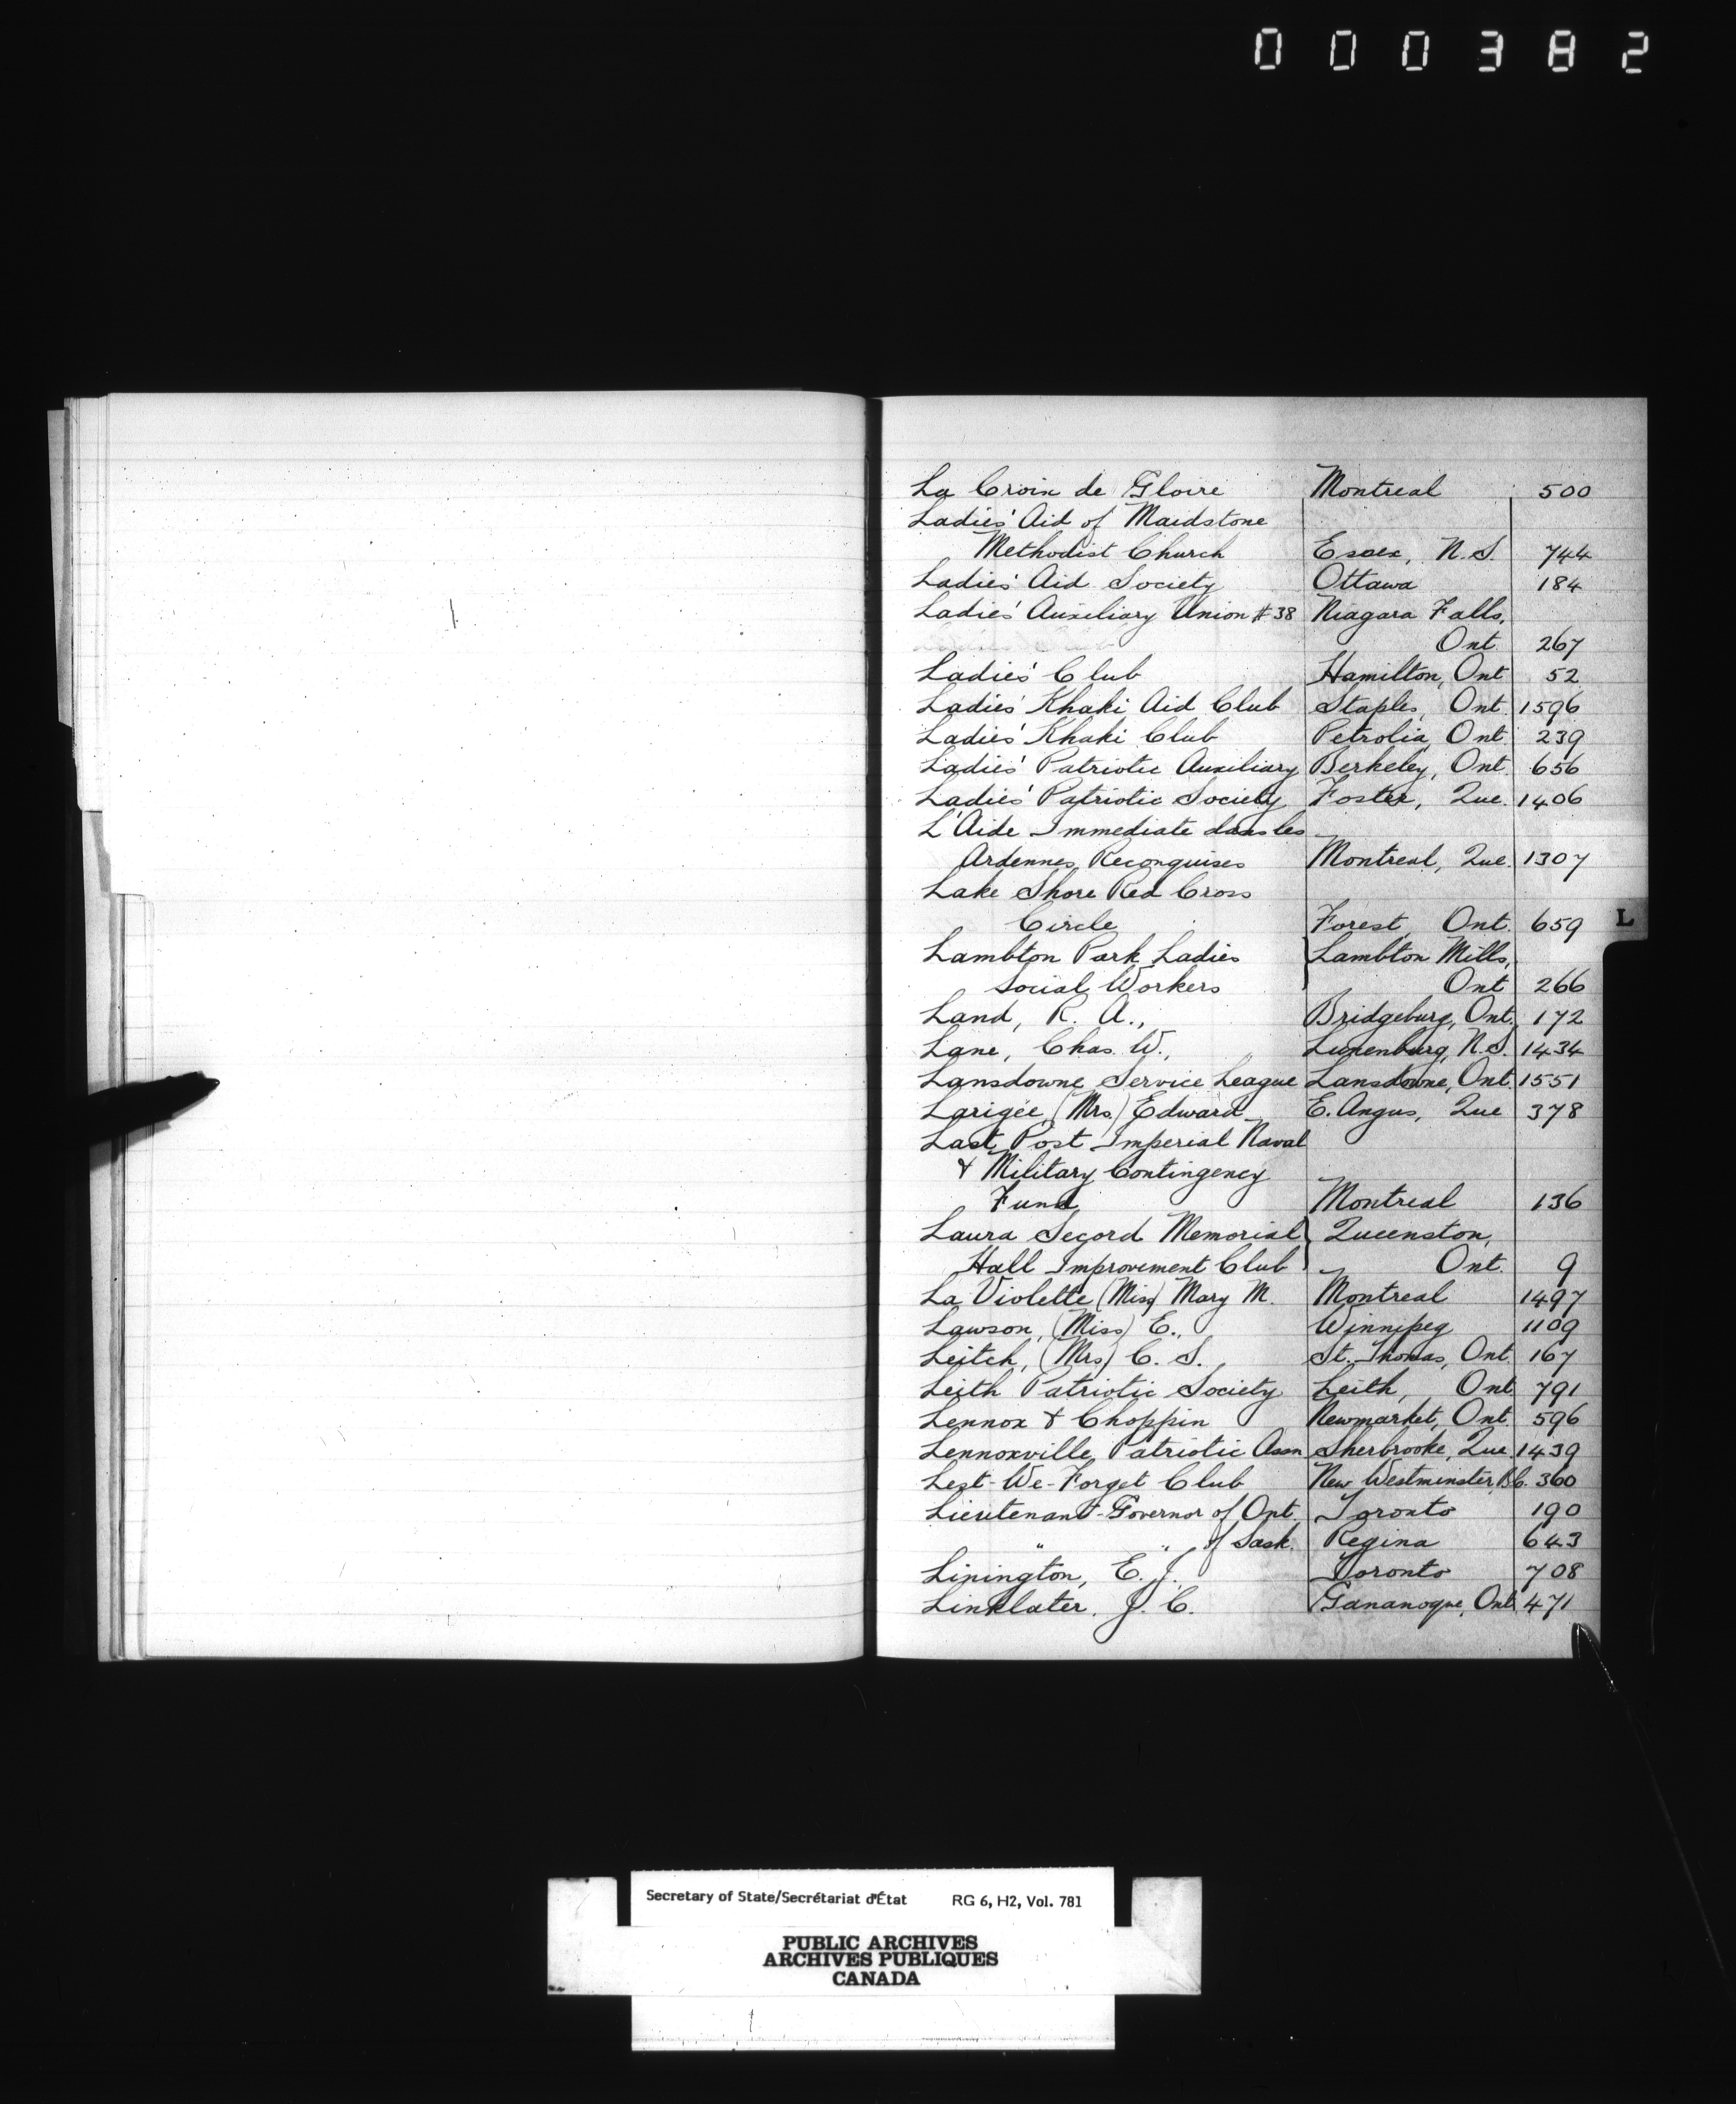 000382
La Croix de Gloire Montreal 500
Ladies' Aid of Maidstone
Methodist Church Essex, N.S. 744
Ladies' Aid Society Ottawa 184
Ladies' Auxiliary Union #38 Niagara Falls,
Ont. 267
Ladies' Club Hamilton, Ont 52
Ladies' Khaki Aid Club Staples, Ont. 1596
Ladies' Khaki Club Petrolia, Ont. 239
Ladies' Patriotic Auxiliary Berkeley, Ont. 656
Ladies' Patriotic Society Foster, Que. 1406
L'Aide Immediate dans les
Ardennes Reconquises Montreal, Que. 1307
Lake Shore Red Cross
Circle Forest, Ont. 659
Lambton Park Ladies Lambton Mills,
Social Workers Ont 266
Land, R. A., Bridgeburg, Ont. 172
Lane, Chas. W., Lunenburg, N.S. 1434
Lansdowne Service League Lansdowne, Ont. 1551
Larigée, (Mrs.) Edward E. Angus, Que 378
Last Post Imperial Naval
& Military Contingency
Fund Montreal 136
Laura Secord Memorial Queenston,
Hall Improvement Club Ont. 9
La Violette (Miss) Mary M. Montreal 1497
Lawson, (Miss) E., Winnipeg 1109
Leitch, (Mrs.) C. S. St. Thomas, Ont. 167
Leith Patriotic Society Leith, Ont. 791
Lennox & Choppin Newmarket, Ont. 596
Lennoxville Patriotic Assn Sherbrooke, Que. 1439
Lest-We-Forget Club New Westminster, B.C. 360
Lieutenant-Governor of Ont. Toronto 190
" " of Sask. Regina 643
Linington, E. J. Toronto 708
Linklater, J. C. Gananoque, Ont. 471
L
Secretary of State/Secrétariat d'État RG 6, H2, Vol. 781
PUBLIC ARCHIVES
ARCHIVES PUBLIQUES
CANADA